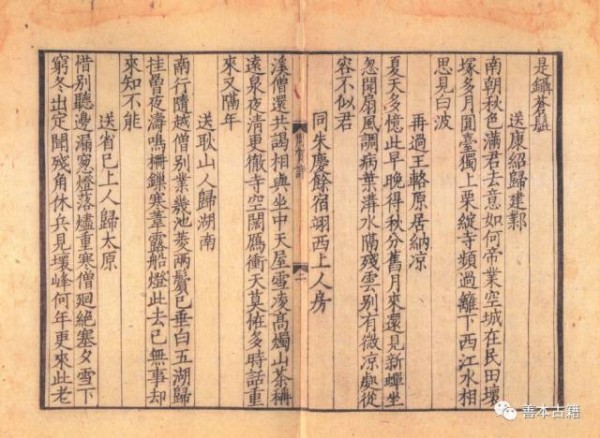 是鑷蒼髭
送康紹歸建鄴
南朝秋色滿君去意如何帝業空城在民田壞
塚多月圓臺獨上栗綻寺頻過籬下西江水相
思見白波
再過王輅原居納凉
夏天多憶此早晚得秋分舊月來還見新蟬坐
忽聞扇風調病葉溝水隔殘雲別有微凉處從
容不似君
同朱慶餘宿翊西上人房
溪僧還共謁相與坐中天屋雪凌高燭山茶稱
遠泉夜清更徹寺空闊鴈衝天莫怪多時話重
來又隔年
周賀詩
一
送耿山人歸湖南
南行隨越僧別業幾池菱兩鬢已垂白五湖歸
挂罾夜濤鳴柵鏁寒葦露船燈此去已無事却
來知不能
送省已上人歸太原
惜別聽邊漏窓燈落燼重寒僧迴絶塞夕雪下
窮冬出定聞殘角休兵見壞峰何年更來此老
善本古籍